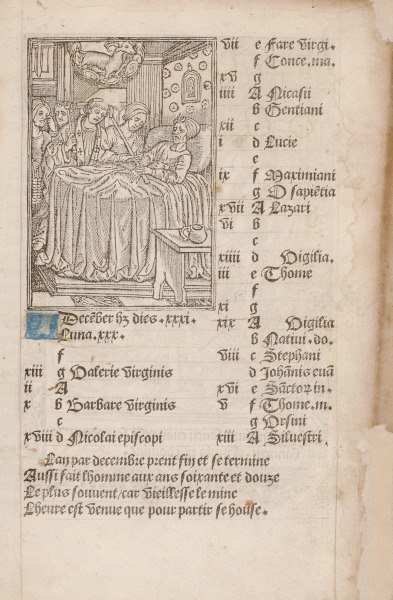 Decēber hȝ dies .xxxi.
Luna.xxx.
f
xiii g Valerie virginis
ii A
x b Barbare virginis
c
xviii d Nicolai episcopi
vii e Fare virgi.
f Conce.ma.
xv g
iiii A Nicasii
b Gentiani
xii c
i d Lucie
e
ix f Maximiani
g O sapiētia
xvii A Lazari
vi b
c
xiiii d Vigilia.
iii e Thome
f
xi g
xix A Vigilia
b Nativi.do.
viii c Stephani
d Johānis euā
xvi e Sāctor̄ in.
v f Thome.m.
c g Vrsini
xiii A Siluestri.
Lan par decembre prent fin et se termine
Aussi fait lhomme aux ans soixante et douze
Le plus souuent/car vieillesse le mine
Lheure est venue que pour partir se house.